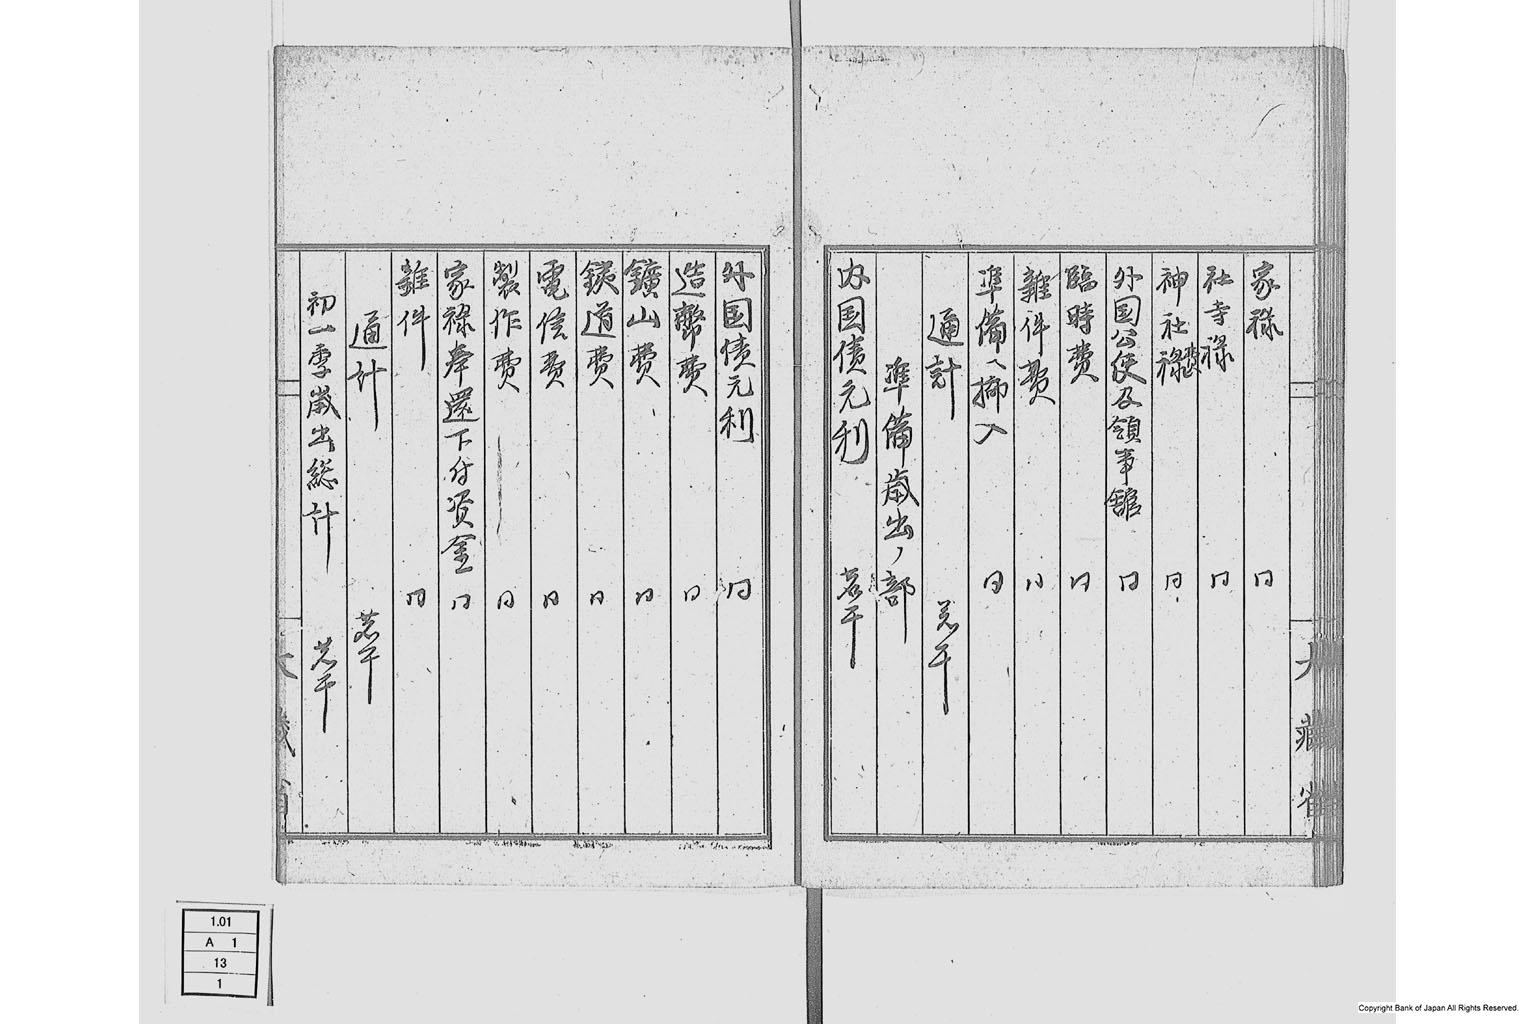 家祿 同
社寺祿 同
神社祿 同
外国公使及領事舘 同
臨時費 同
雜件費 同
準備ヘ挪入 同
通計 若干
準備歳出ノ部
内国債元利 若干
外国債元利 同
造幣費 同
鑛山費 同
鐵道費 同
電信費 同
製作費 同
家祿奉還下付資金 同
雜件 同
通計 若干
初一季歳出総計 若干
大藏省
大藏省
1.01
A 1
13
1
Copyright Bank of Japan All Rights Reserved.